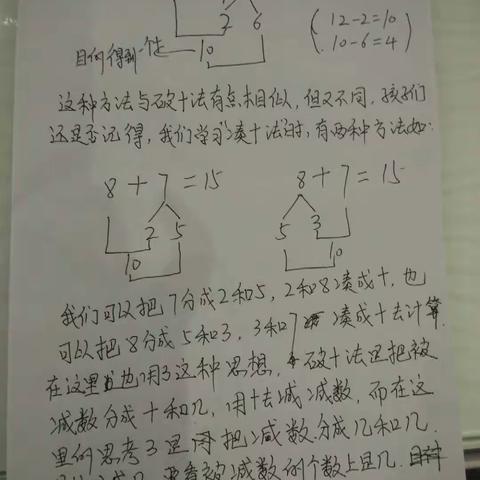 2 6
12-2=10
目何得到一个十 10
10-6=4
这种方法与破十法有点相似,但又不同,孩子们
还是否记得,我们学习凑十法时,有两种方法如:
8+7=15 8+7=15
2 5 5 3
10 10
我们可以把7分成2和5,2和8凑成十,也
可以把8分成5和3,3和7凑成十去计算.
在这里也用了这种思想,破十法是把被
减数分成十和几,用十去减减数,而在这
里的思考了是把减数分成几和几.
要看被减数的个数上是几.